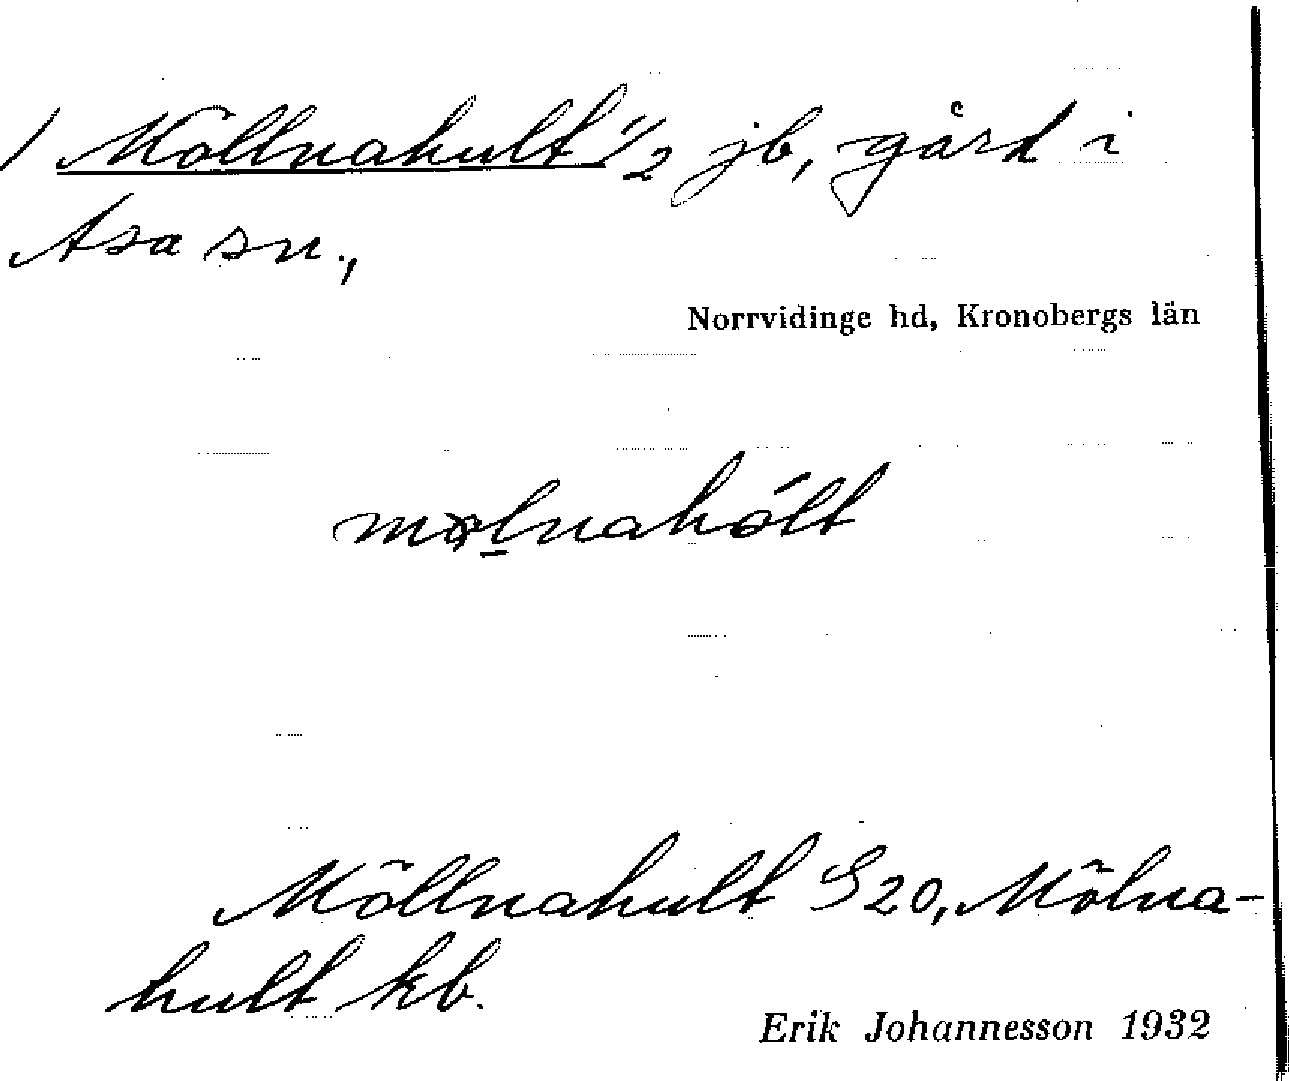 / Möllnahult 1/2 jb, gård i
Asa sn.,
Norrvidinge hd, Kronobergs län
møl̠nahólt
Möllnahult S 20, Mölna-
hult kb.
Erik Johannesson 1932